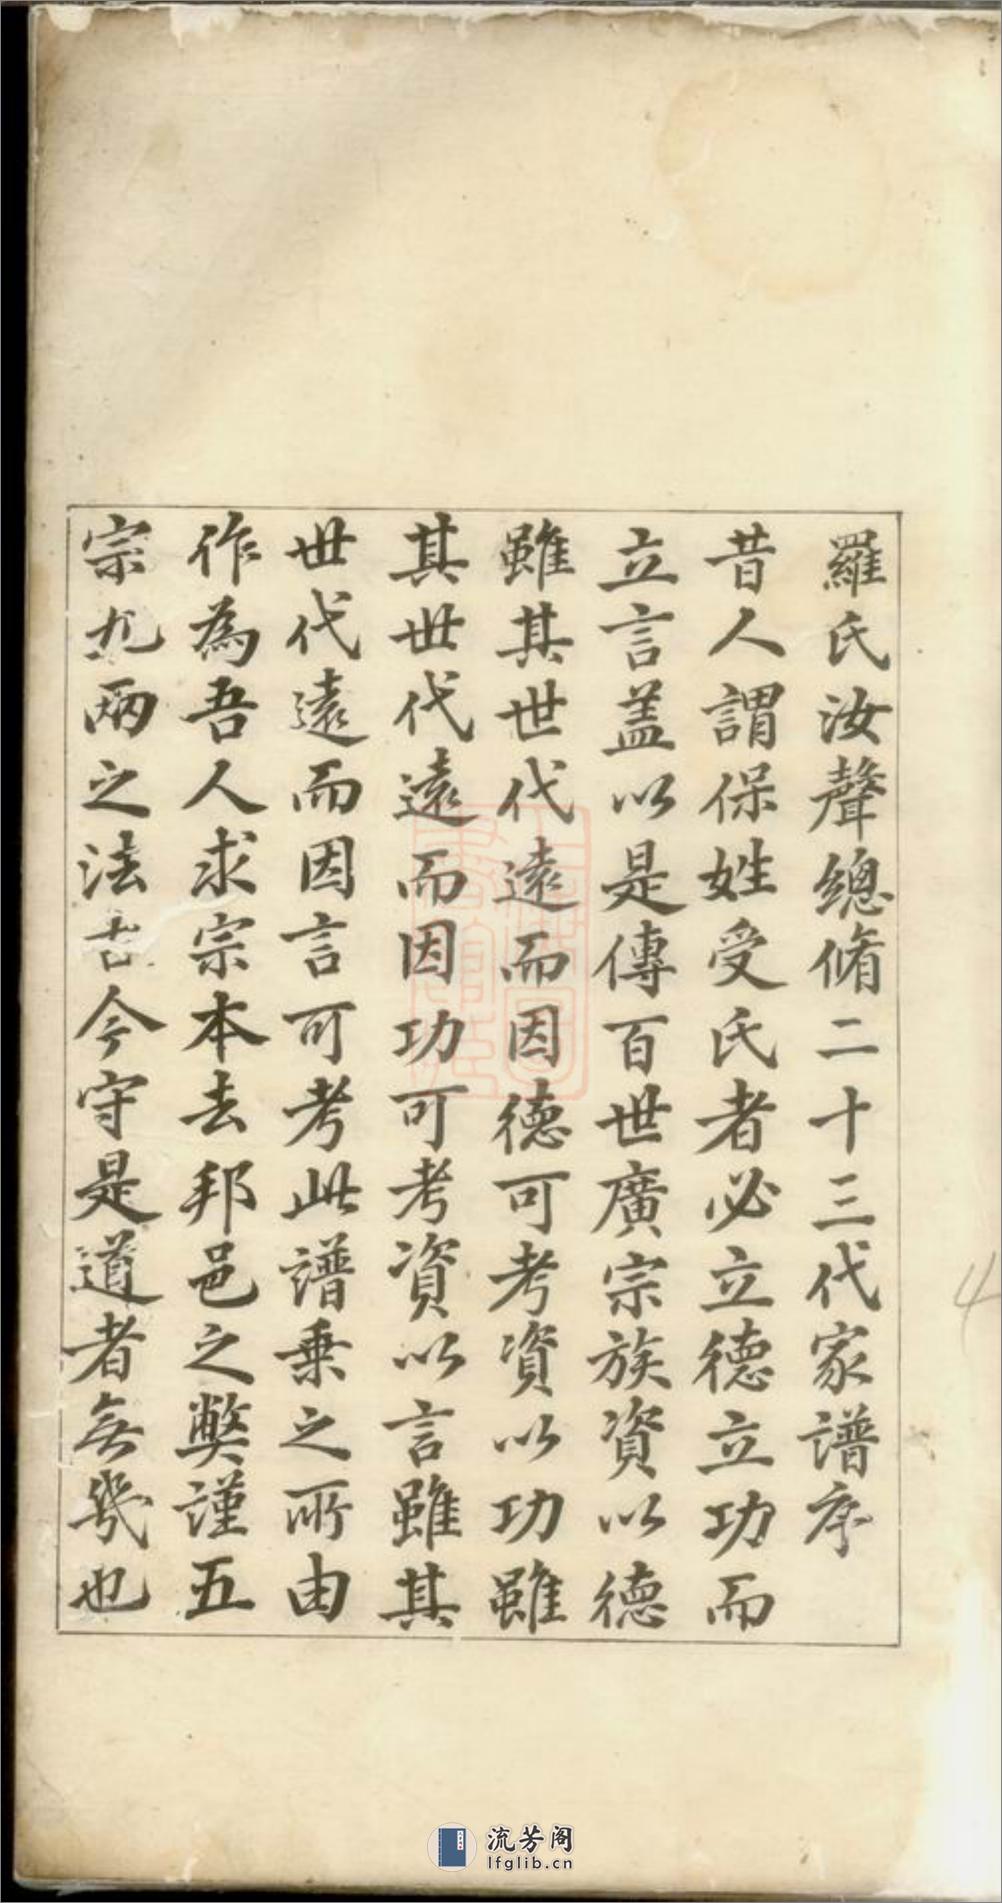 羅氏汝聲總脩二十三代家譜序
昔人謂保姓受氏者必立德立功而
立言盖以是傳百世廣宗族資以德
雖其世代遠而因德可考資以功雖
其世代遠而因功可考資以言雖其
世代遠而因言可考此譜乗之所由
作為吾人求宗本去邦邑之弊謹五
宗九兩之法古今守是道者無幾也
流芳阁
lfglib.cn